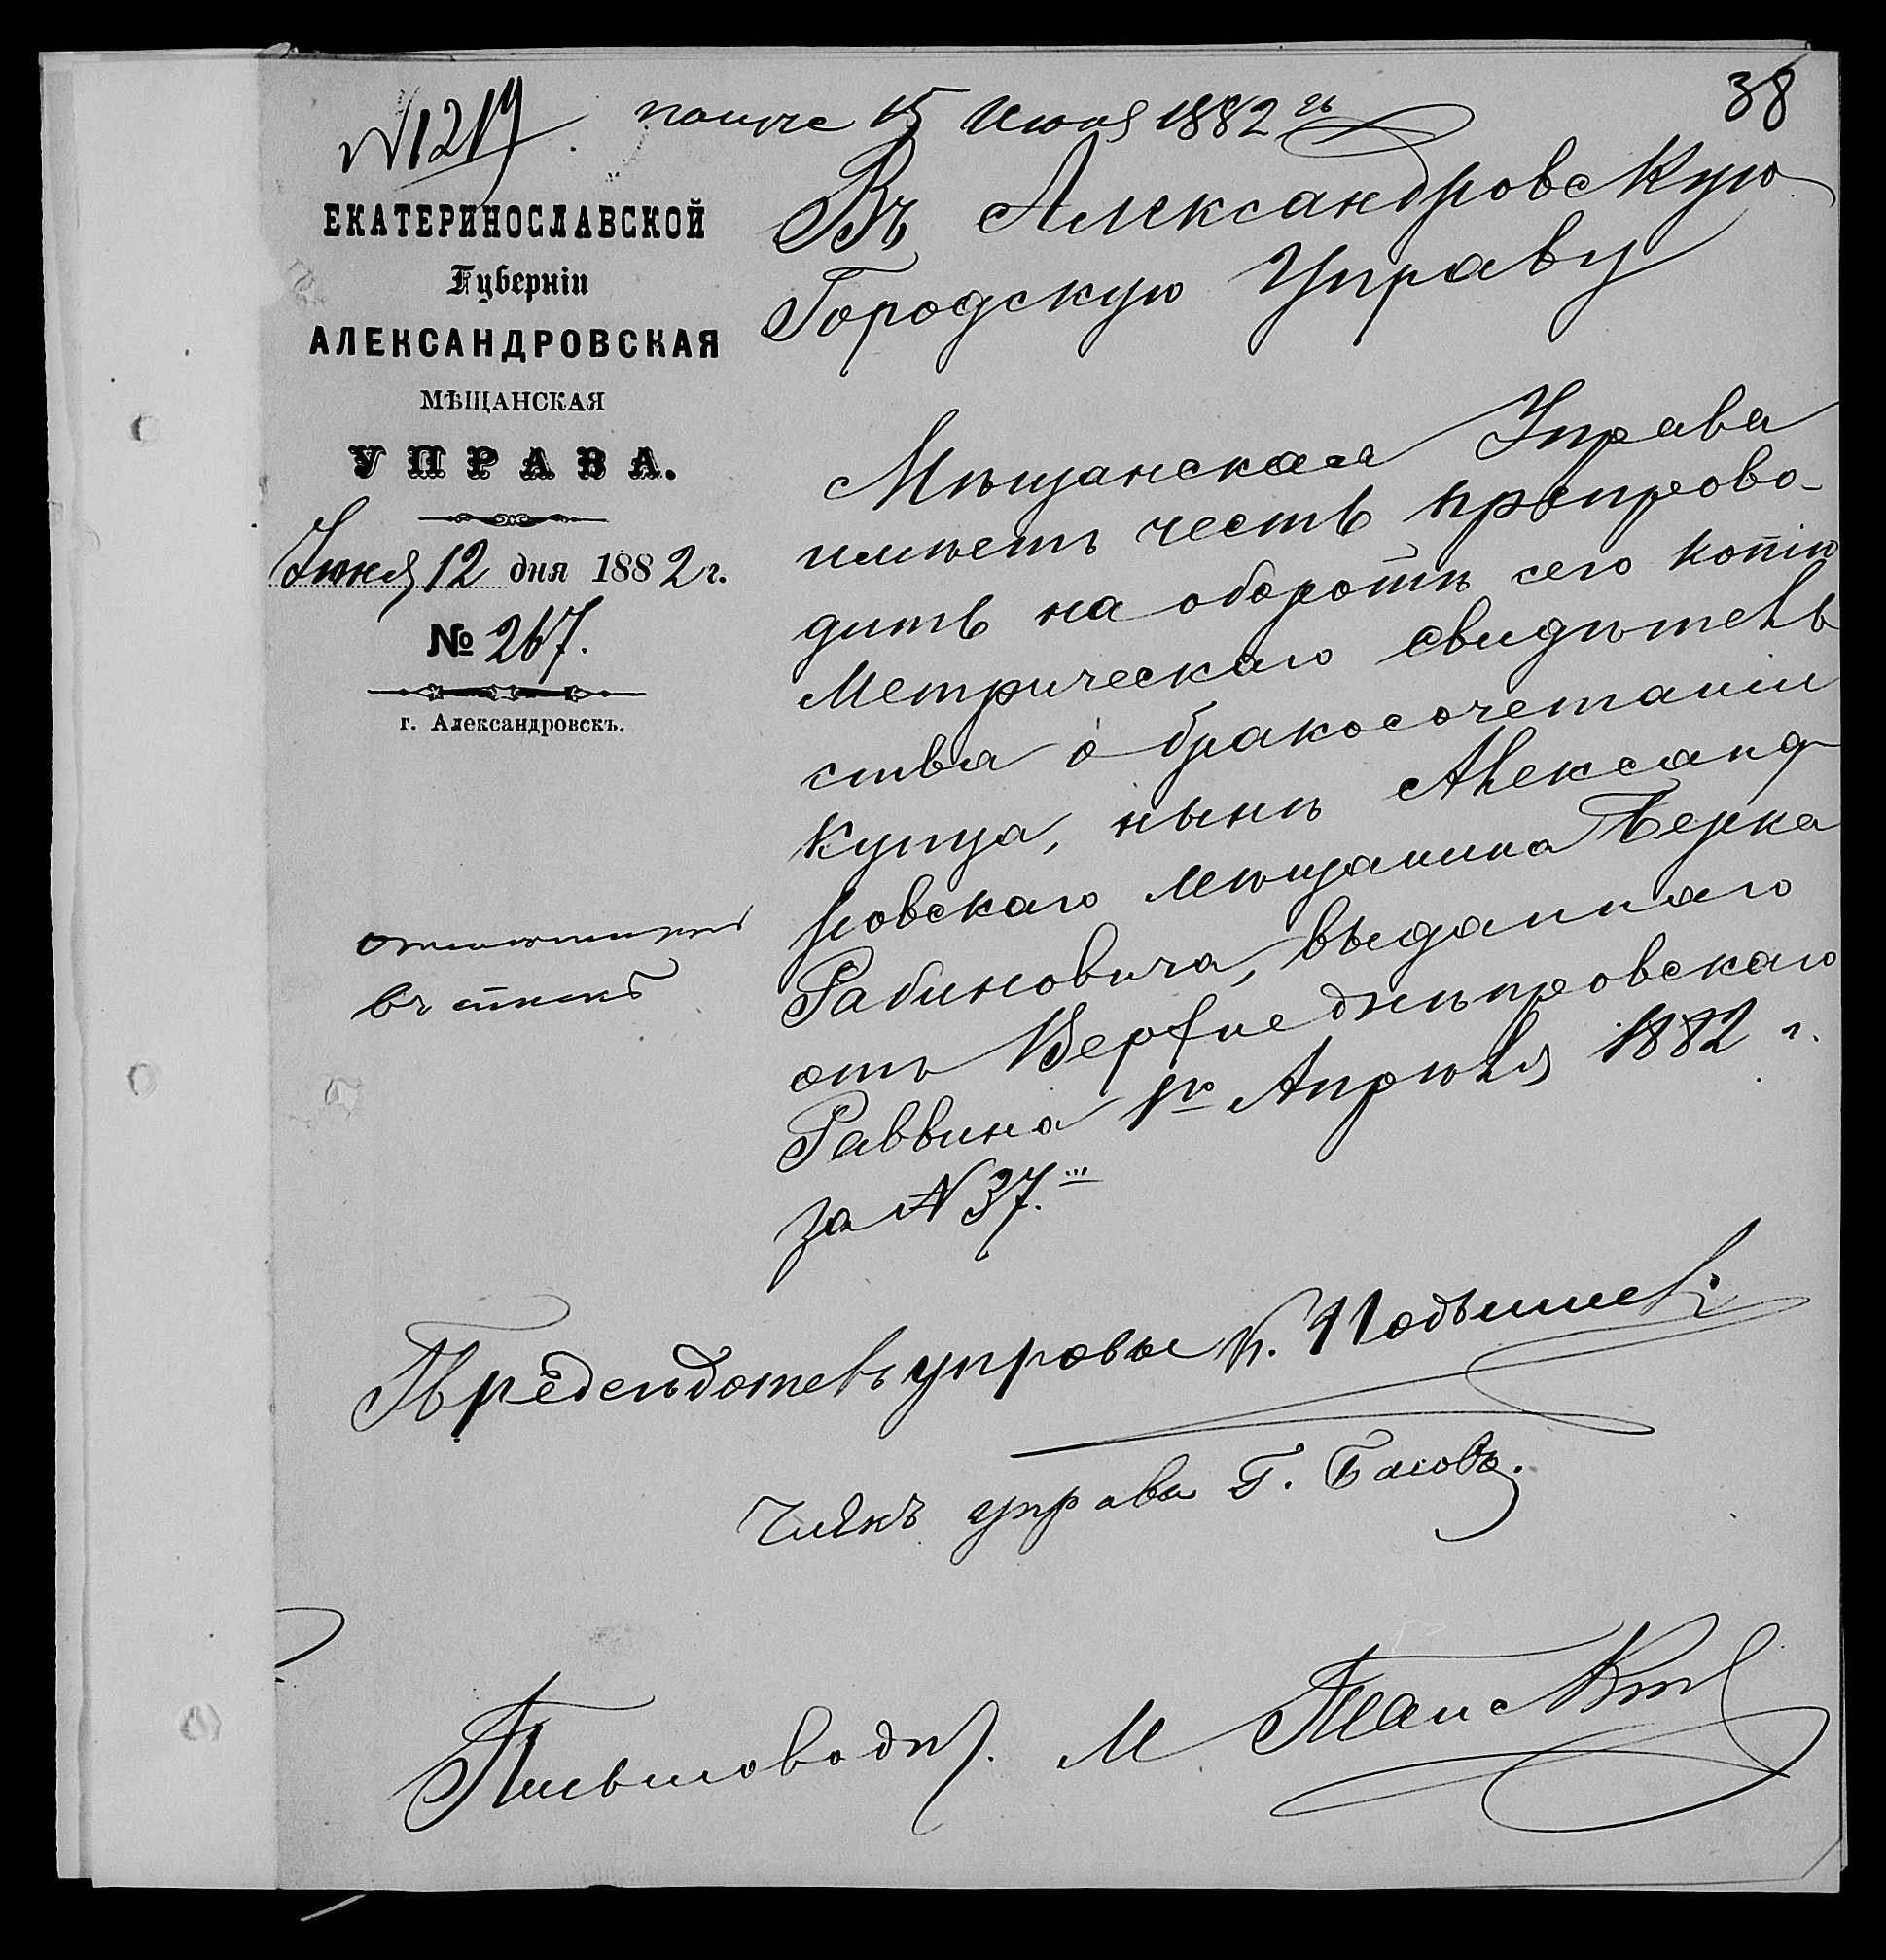 38
№ 1219
получе 15 Июня 1882 гъ
ЕКАТЕРИНОСЛАВСКОЙ
Губерніи
АЛЕКСАНДРОВСКАЯ
МѢЩАНСКАЯ
УПРАВА.
Іюня 12 дня 1882 г.
№ 267.
г. Александровскъ.
Въ Александровскую
Городскую Управу
Мѣщанская Управа
имѣетъ честь препрово-
дить на оборотѣ сего копію
Метрическаго свидѣтель
ства о бракосочетаніи
Купца, нынѣ Александ
ровскаго мѣщанина Берка
Рабиновича, выданнаго
отъ Верхнеднѣпровскаго
Раввина 1го Апрѣля 1882 г.
за № 37.
въ
Предсѣдатель управы К.
Членъ управы Г. Басовъ.
Письмовод. М